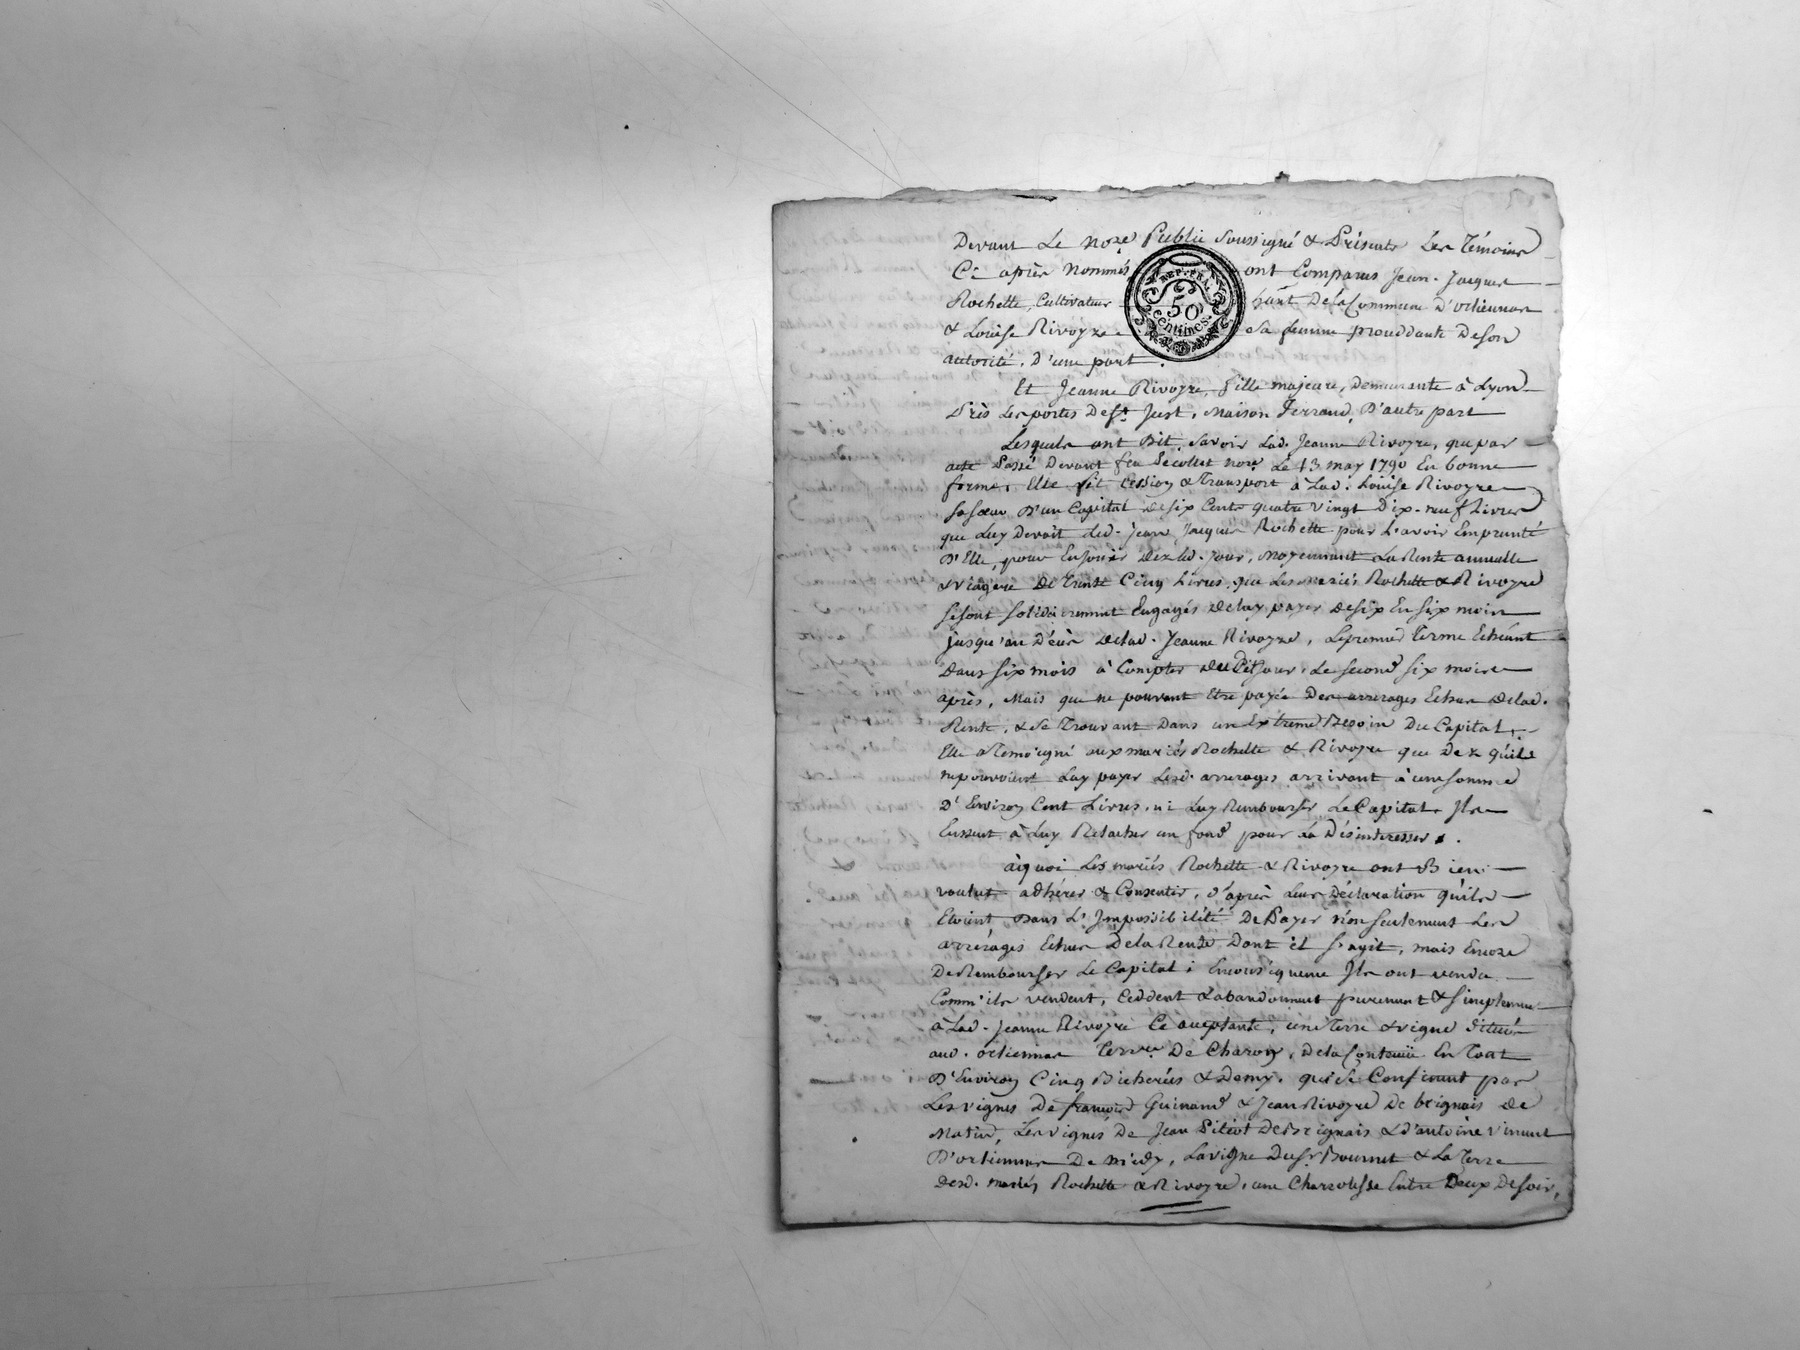 Devant Le Nore Public Soussigné & Présents Les Témoins
Ci après Nommés ont Comparus Jean-Jacques
Rochette, Cultivateur hant De la Commune D'orlienas
& Louise Rivoyre sa femme procédante De son
autorité, D'une part.
REP. FRA.
50
centimes.
Et Jeanne Rivoyre, fille majeure, Demeurante à Lyon
Près Les portes De St Just, Maison Ferrand, D'autre part
Lesquels ont Dit, Savoir Lad. Jeanne Rivoyre, que par
acte Passé Devant feu Decollet nore Le 13 may 1790 En bonne
forme, Elle fit Cession & Transport à Lad. Louise Rivoyre
sa sœur D'un Capital de Six Cents quatre vingt Dix-neuf Livres
que Luy Devoit Led. jean Jacques Rochette pour L'avoir Emprunté
D'Elle, pour En Jouir Dez led. jour, Moyennant La Rente annuelle
& viagere De Trente Cinq Livres, que Les Mariés Rochette & Rivoyre
Se sont solidairement Engagés De luy payer De Six En Six mois
jusqu'au Décès De lad. Jeanne Rivoyre, Le premier Terme Echéant
Dans Six mois à Compter Du Dit Jour, Le Second Six mois
après, Mais que ne pouvant Etre payée Des arrerages Echus De lad.
Rente, & Se Trouvant Dans un Extreme Besoin Du Capital,
Elle a Temoigné aux mariés Rochette & Rivoyre que Dez qu'ils
ne pouvoient Luy payer Lesd. arrerages arrivant à une Somme
D'Environ Cent Livres, ni Luy Rembourser Le Capital, Ils
Eussent à Luy Relacher un fond pour La Désinteresser.
à quoi Les mariés Rochette & Rivoyre ont Bien
voulut adhérer & Consentir, D'après Leur Déclaration qu'ils
Etoient Dans L'Impossibilité De Payer non Seulement Les
arrérages Echus De la Rente Dont il S'agit, mais Encore
De Rembourser Le Capital; En Conséquence Ils ont vendu
Comm'ils vendent, Cèddent & abandonnent purement & Simplement
à Lad. Jeanne Rivoyre Ce acceptante, une Terre & vigne Située
aud. orlienas Terre De Charon, De la Contenüe En Tout
D'Environ Cinq Bicherées & Demy, qui Se Confinent par
Les vignes De françois Guinand & Jean Rivoyre De brignais De
Matin, Les vignes De Jean Pitiot De Brignais & D'antoine Vincent
D'orlienas De Midy, La vigne Du Sr Bournet & La Terre
Desd. mariés Rochette & Rivoyre, une Charrotesse Entre Deux De Soir,